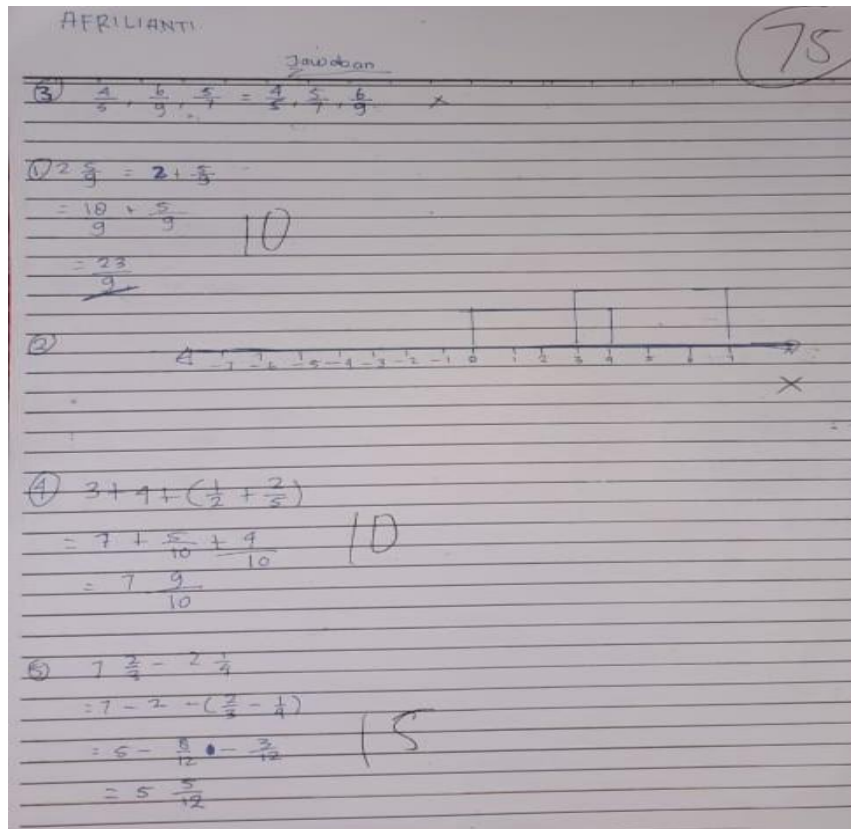 AFRILIANTI
75
Jawaban
③ 4/5, 6/9, 5/7 = 4/5, 5/7, 6/9 ×
① 2 5/9 = 2 + 5/9
= 18/9 + 5/9
10
= 23/9
②
-7 -6 -5 -4 -3 -2 -1 0 1 2 3 4 5 6 7
×
④ 3 + 4 + (1/2 + 2/5)
= 7 + 5/10 + 4/10
10
= 7 9/10
⑤ 7 2/3 - 2 1/4
= 7 - 2 - (2/3 - 1/4)
= 5 - 8/12 - 3/12
15
= 5 5/12